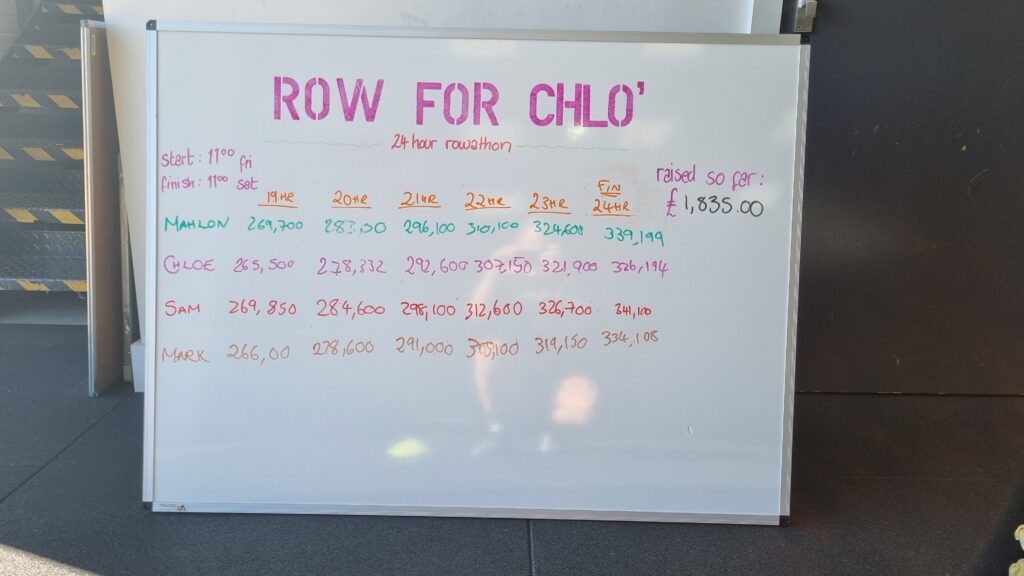 ROW FOR CHLO'
24 hour rowathon
start: 11⁰⁰ fri
finish: 11⁰⁰ sat
raised so far:
£ 1,835.00
19HR 20HR 21HR 22HR 23HR FIN 24HR
MAHLON 269,700 283,00 296,100 310,100 324,600 339,199
CHLOE 265,500 278,332 292,600 307,150 321,900 336,194
SAM 269,850 284,600 298,100 312,600 326,700 341,100
MARK 266,00 278,600 291,000 305,100 319,150 334,108